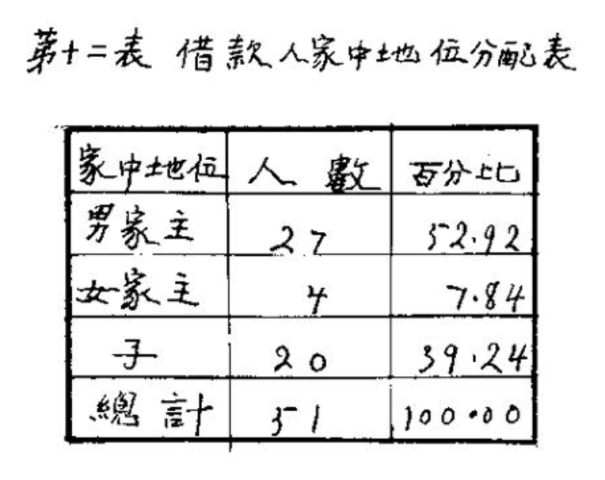 第十二表 借款人家中地位分配表
家中地位 人數 百分比
男家主 27 52.92
女家主 4 7.84
子 20 39.24
總計 51 100.00